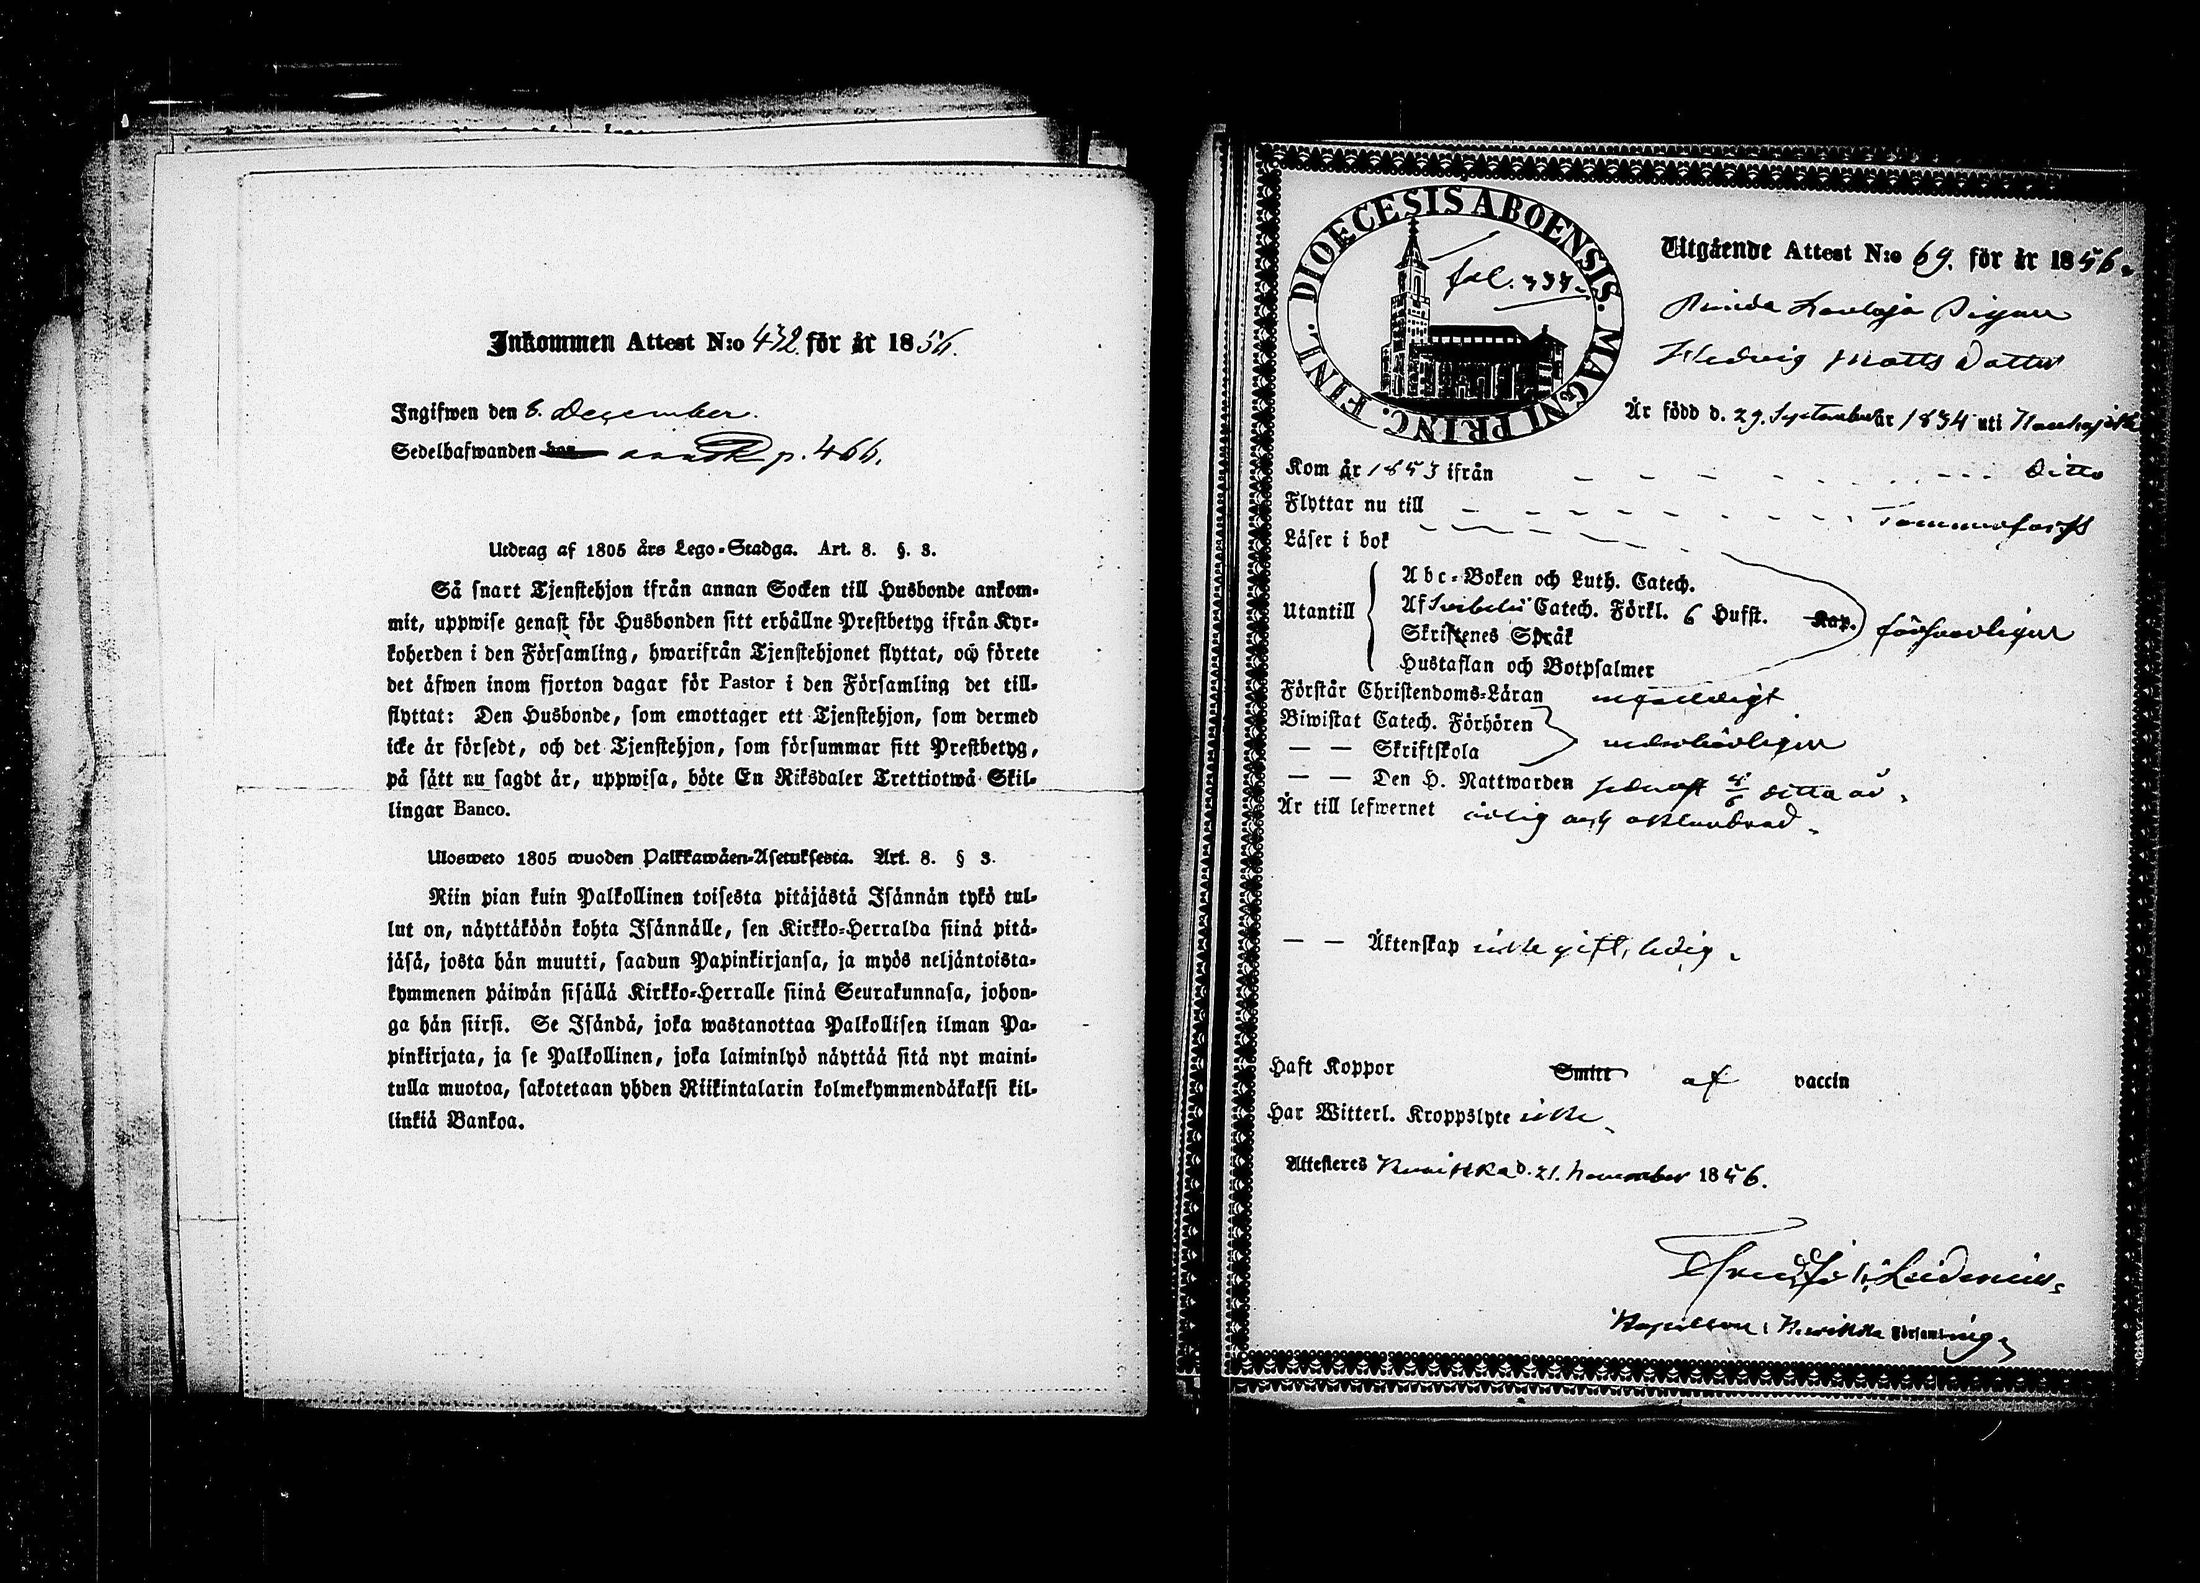 Inkommen Attest N:o 432. för år 1856.
Ingifwen den 8. December.
Sedelhafwanden har p. 466.
Utdrag af 1805 års Lego-Stadga. Art. 8. §. 3.
Så snart Tjenstehjon ifrån annan Socken till Husbonde ankom-
mit, uppwise genast för Husbonden sitt erhållne Prestbetyg ifrån Kyr-
koherden i den Församling, hwarifrån Tjenstehjonet flyttat, och förete
det äfwen inom fjorton dagar för Pastor i den Församling det till-
flyttat: Den Husbonde, som emottager ett Tjenstehjon, som dermed
icke är försedt, och det Tjenstehjon, som försummar sitt Prestbetyg,
på sätt nu sagdt är, uppwisa, böte En Riksdaler Trettiotwå Skil-
lingar Banco.
Ulosweto 1805 wuoden Palkkawäen-Asetuksesta. Art. 8. § 3.
Niin pian kuin Palkollinen toisesta pitäjästä Isännän tykö tul-
lut on, näyttäköön kohta Isännälle, sen Kirkko-Herralda siinä pitä-
jäsä, josta hän muutti, saadun Papinkirjansa, ja myös neljäntoista-
kymmenen päiwän sisällä Kirkko-Herralle siinä Seurakunnasa, johon-
ga hän siirsi. Se Isändä, joka wastanottaa Palkollisen ilman Pa-
pinkirjata, ja se Palkollinen, joka laiminlyö näyttää sitä nyt maini-
tulla muotoa, sakotetaan yhden Riikintalarin kolmekymmendäkaksi kil-
linkiä Bankoa.
DIOECESIS ABOENSIS. MAGNI PRINC. FINL.
fol.
Utgående Attest N:o 69. för år 1856.
Pigan
Hedvig Matts Dotter
Är född d. 29. September år 1834 uti
Kom år 1853 ifrån Ditto
Flyttar nu till Tammerfors
Läser i bok
Utantill
Abc-Boken och Luth. Catech.
Af Svebelii Catech. Förkl. 6 Hufst. Kap.
Skriftenes Språk
Hustaflan och Botpsalmer
försvarligen
Förstår Christendoms-Läran
Biwistat Catech. Förhören
— — Skriftskola
— — Den H. Nattwarden senast 8/6 detta år.
Är till lefwernet ärlig och oklandrad.
— — Äktenskap icke gift, ledig.
Haft Koppor Smitt af vaccin
Har Witterl. Kroppslyte icke
Attesteres d. 21. November 1856.
Församling